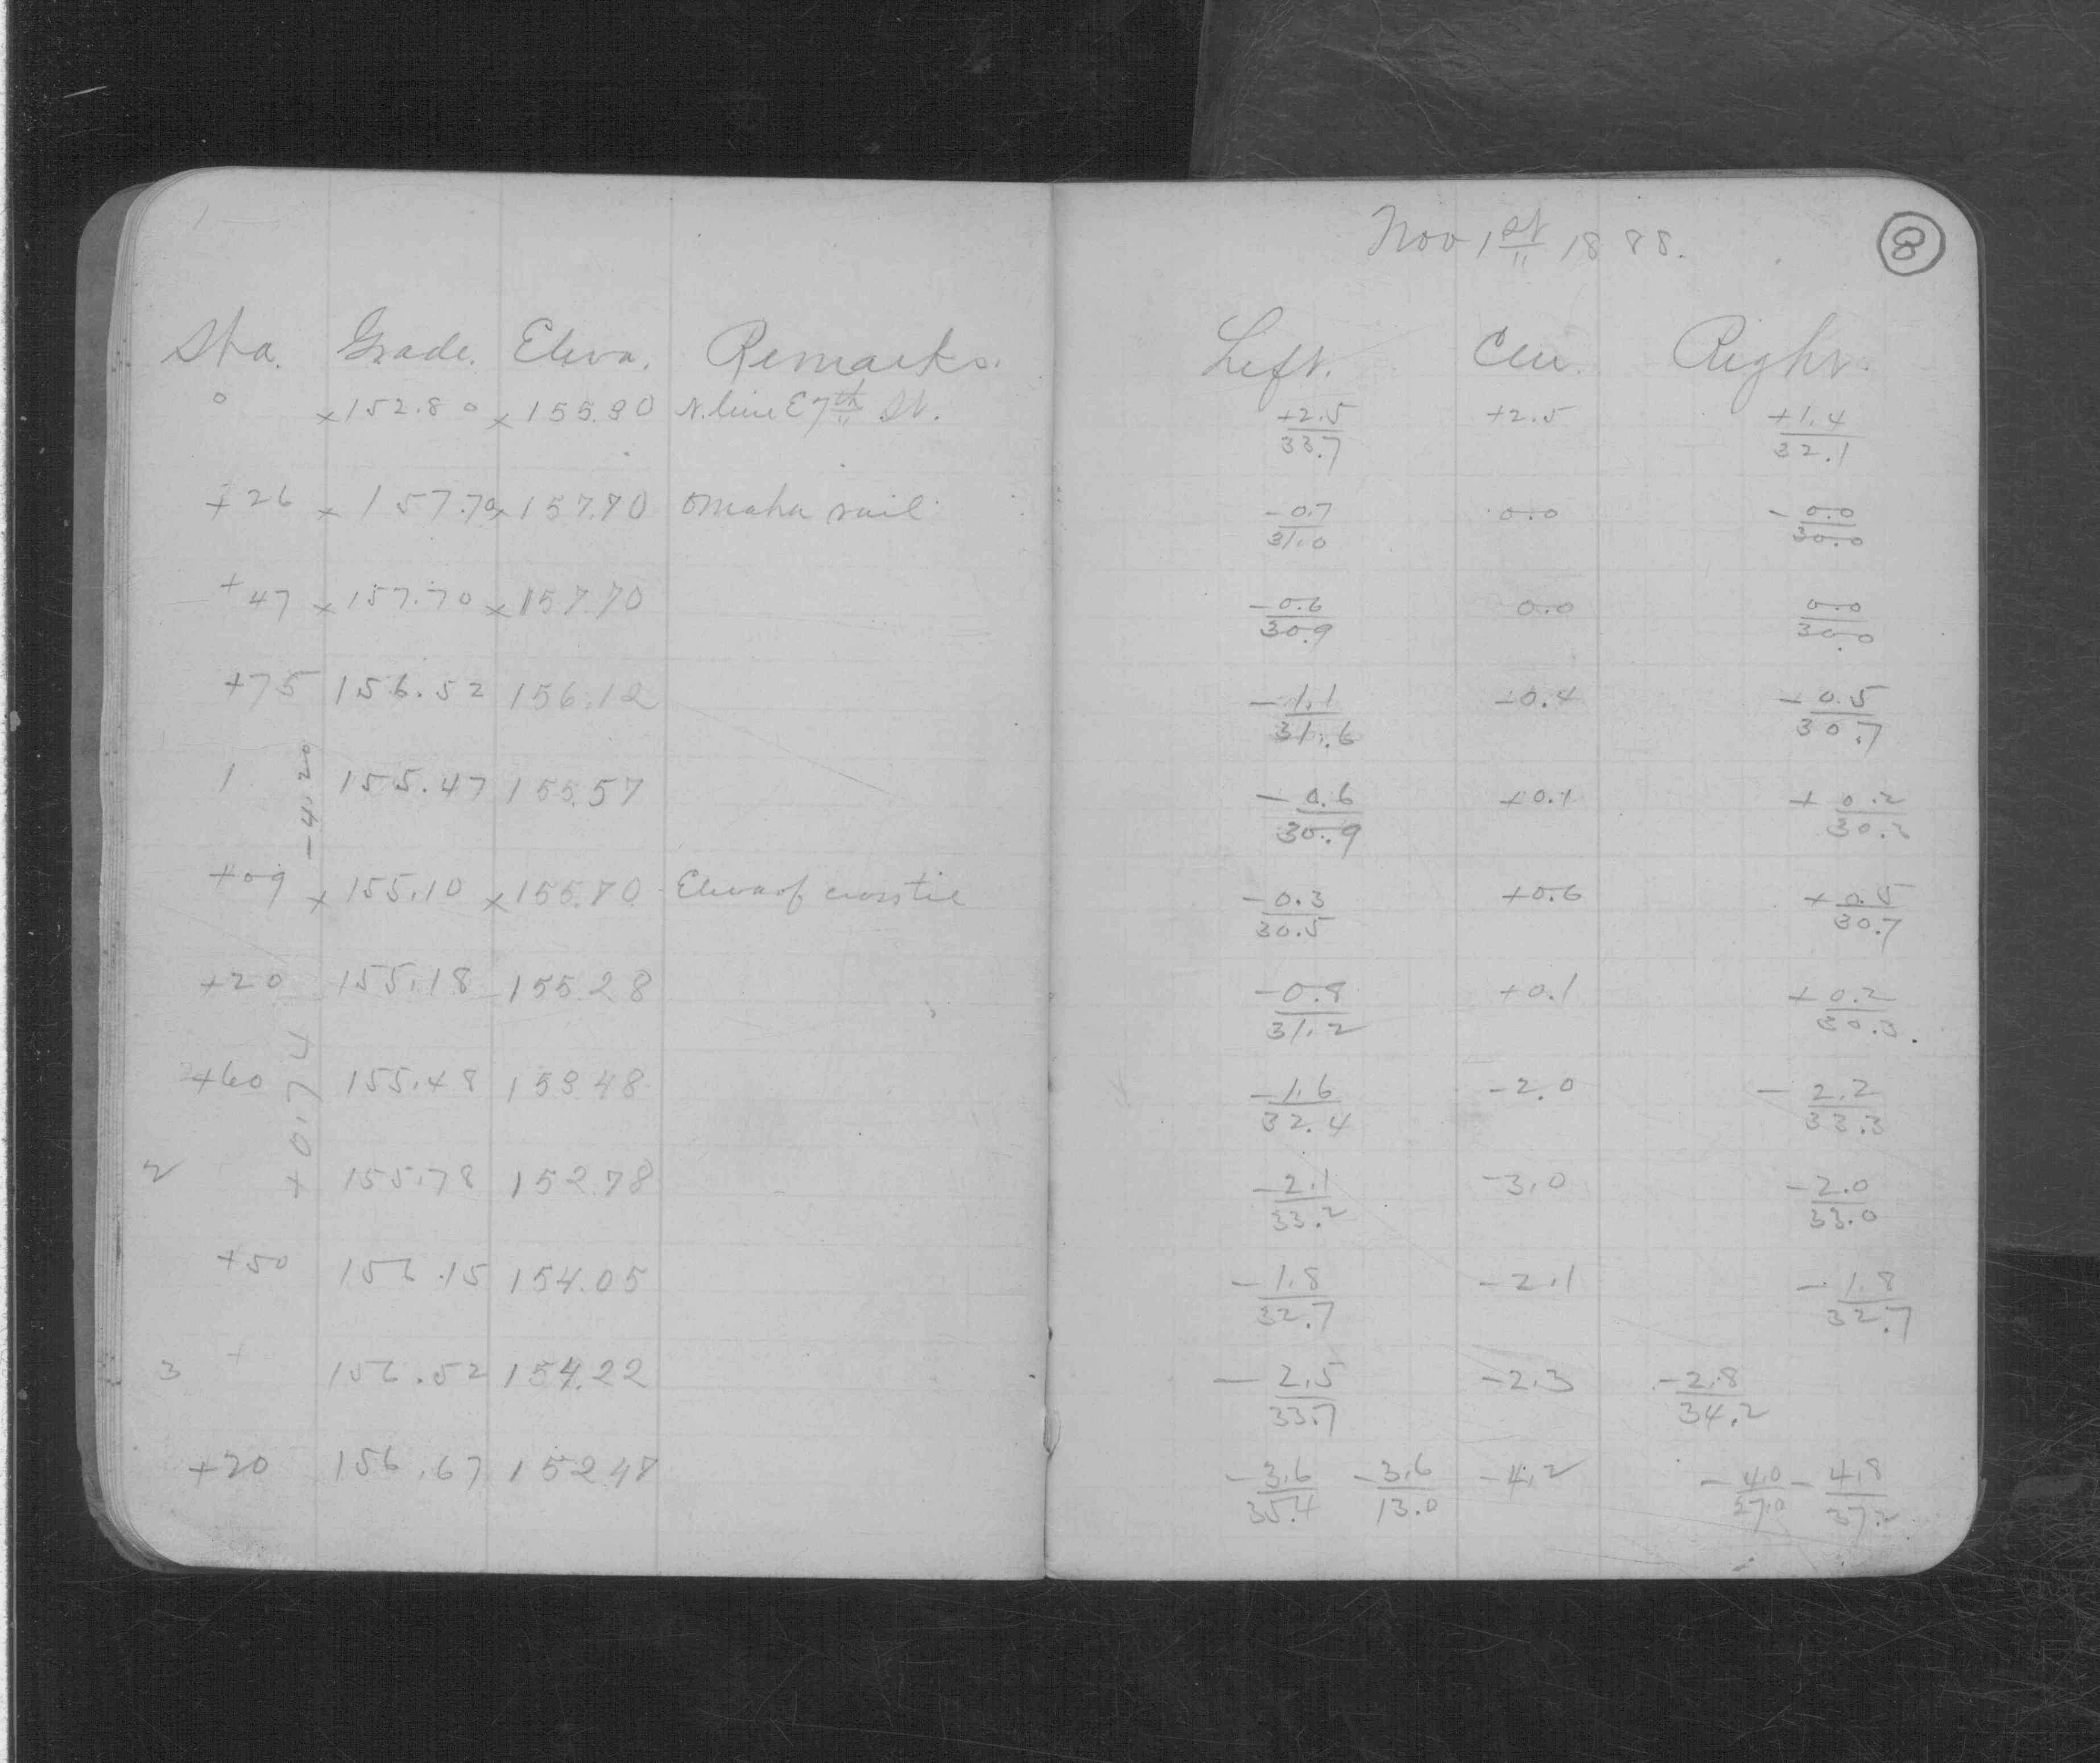 Nov 1st 1888.
8
Sta. Grade. Eleva. Remarks. Left. Cen. Right.
0 x 152.80 x 155.30 N. line E 7th St. +2.5/33.7 +2.5 +1.4/32.1
+26 x 157.70 x 157.70 Omaha rail -0.7/31.0 0.0 -0.0/30.0
+47 x 157.70 x 157.70 -0.6/30.9 0.0 0.0/30.0
+75 156.52 156.12 -1.1/31.6 -0.4 -0.5/30.7
-4.20
1 155.47 155.57 -0.6/30.9 +0.1 +0.2/30.3
+09 x 155.10 x 155.70 Eleva of cross tie -0.3/30.5 +0.6 +0.5/30.7
+20 155.18 155.28 -0.8/31.2 +0.1 +0.2/30.3
+0.74
+60 155.48 153.48 -1.6/32.4 -2.0 -2.2/33.3
2 155.78 152.78 -2.1/33.2 -3.0 -2.0/33.0
+50 156.15 154.05 -1.8/32.7 -2.1 -1.8/32.7
3 + 156.52 154.22 -2.5/33.7 -2.3 -2.8/34.2
+20 156.67 152.47 -3.6/35.4 -3.6/13.0 -4.2 -4.0/27.0 -4.8/37.2